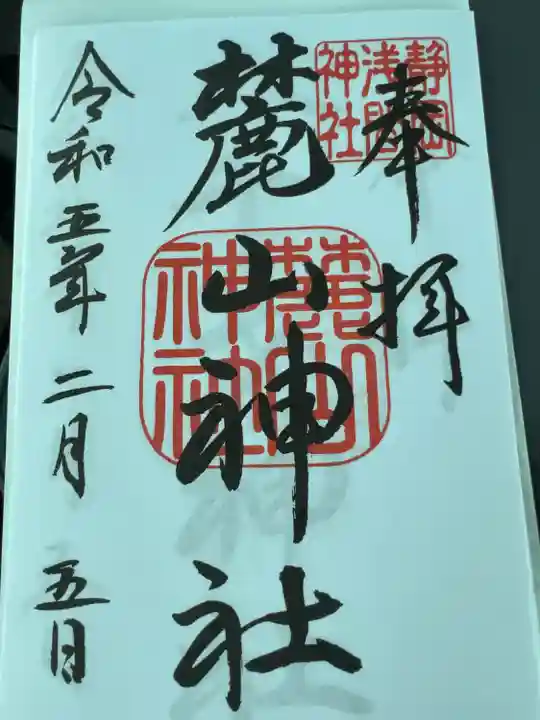 奉拝
静岡
浅間
神社
麓山神社
麓山
神社
令和五年二月五日